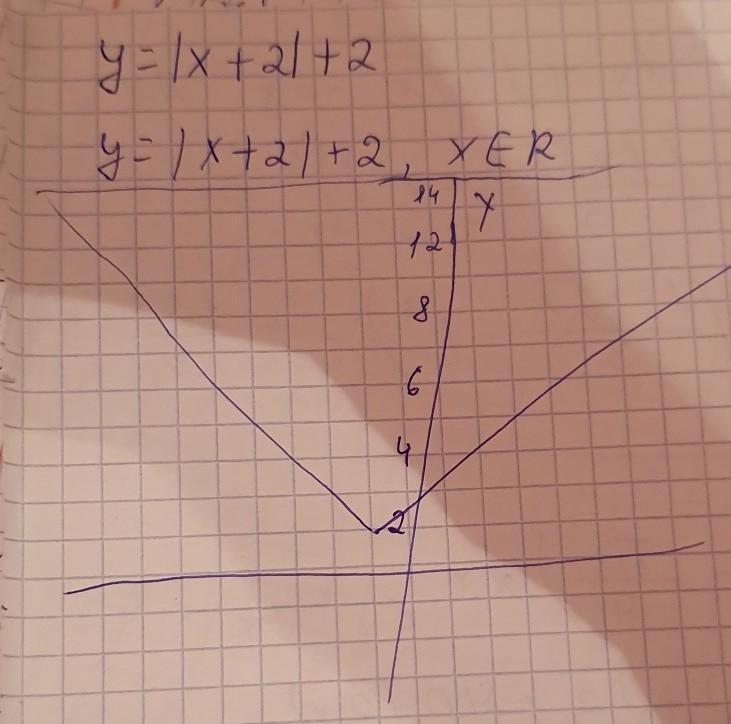 y=|x+2|+2
y=|x+2|+2, x∈R
14 y
12
8
6
4
2